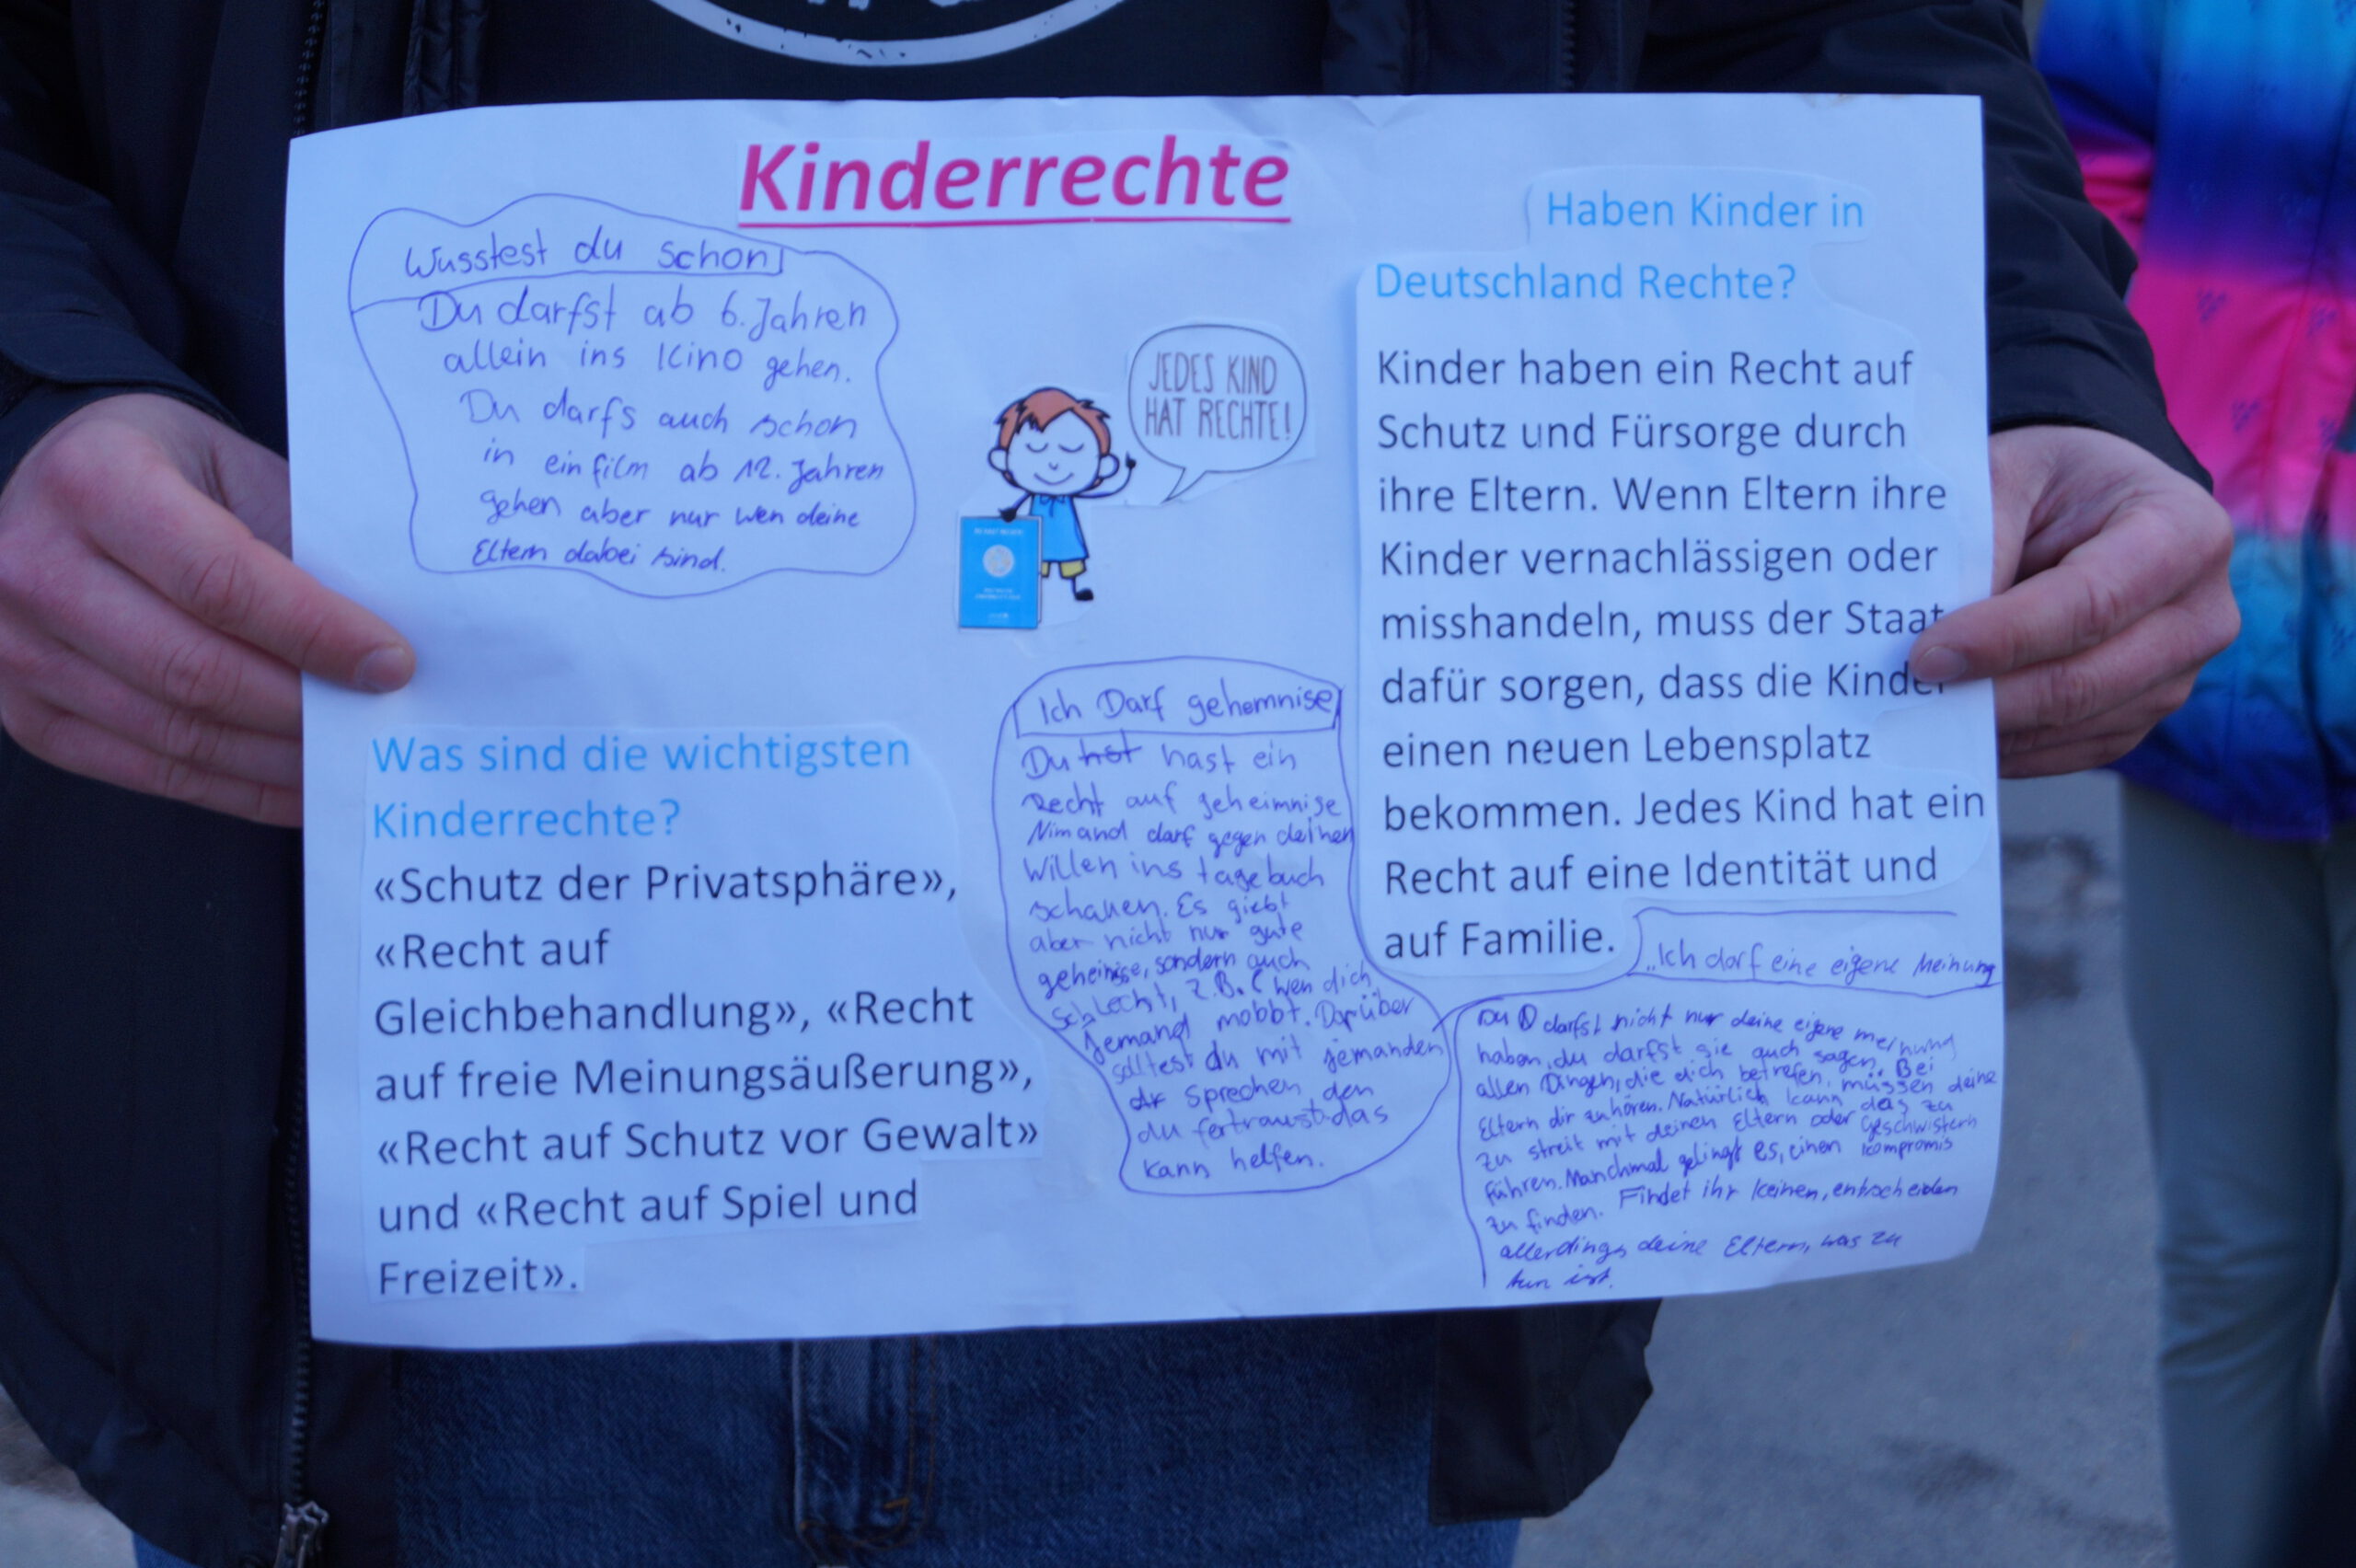 Kinderrechte
Wusstest du schon
Du darfst ab 6. Jahren
allein ins Kino gehen.
Du darfs auch schon
in ein film ab 12. Jahren
gehen aber nur wen deine
Eltern dabei sind.
JEDES KIND
HAT RECHTE!
Haben Kinder in
Deutschland Rechte?
Kinder haben ein Recht auf
Schutz und Fürsorge durch
ihre Eltern. Wenn Eltern ihre
Kinder vernachlässigen oder
misshandeln, muss der Staat
dafür sorgen, dass die Kinder
einen neuen Lebensplatz
bekommen. Jedes Kind hat ein
Recht auf eine Identität und
auf Familie.
Was sind die wichtigsten
Kinderrechte?
«Schutz der Privatsphäre»,
«Recht auf
Gleichbehandlung», «Recht
auf freie Meinungsäußerung»,
«Recht auf Schutz vor Gewalt»
und «Recht auf Spiel und
Freizeit».
Ich Darf gehomnise
Du hast ein
Recht auf geheimnise
Nimand darf gegen deinen
Willen ins tagebuch
schauen. Es giebt
aber nicht nur gute
geheinise, sondern auch
Schlecht, z.B. (wen dich
jemand mobbt. Darüber
solltest du mit jemanden
sprechen den
du fertraust das
kann helfen.
„Ich darf eine eigene Meinung
Du darfst nicht nur deine eigene meinung
haben, du darfst sie auch sagen. Bei
allen Dingen, die dich betrefen, müssen deine
Eltern dir zuhören. Natürlich kann das zu
zu streit mit deinen Eltern oder Geschwistern
führen. Manchmal gelingt es, einen kompromis
zu finden. Findet ihr keinen, entscheiden
allerdings deine Eltern, was zu
tun ist.